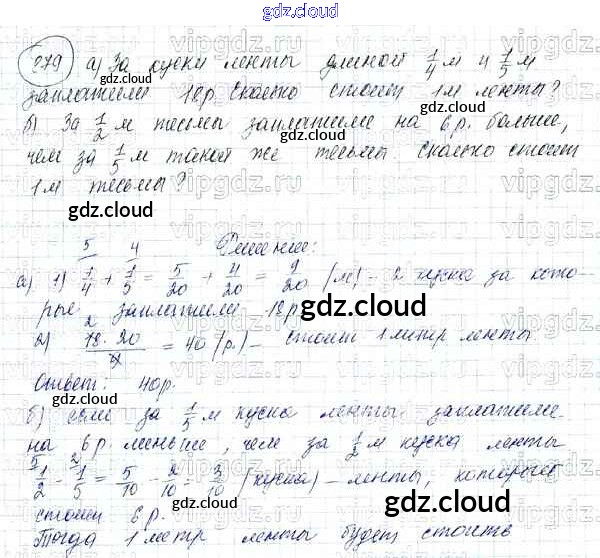 gdz.cloud
279 а) За куски ленты длиной 1/4 м и 1/5 м
заплатили 18р. Сколько стоит 1м ленты?
б) За 1/2 м тесьмы заплатили на 6р. больше,
чем за 1/5 м такой же тесьмы. Сколько стоит
1м тесьмы?
Решение:
а) 1) 1/4 + 1/5 = 5/20 + 4/20 = 9/20 (м) - 2 куска за кото-
рые заплатили 18р
2) 18·20/9 = 40 (р.) - стоит 1 метр ленты.
Ответ: 40р.
б) если за 1/5 м куска ленты заплатили
на 6р. меньше, чем за 1/2 м куска ленты
1/2 - 1/5 = 5/10 - 2/10 = 3/10 (куска) - ленты, которые
стоят 6р.
Тогда 1 метр ленты будет стоить